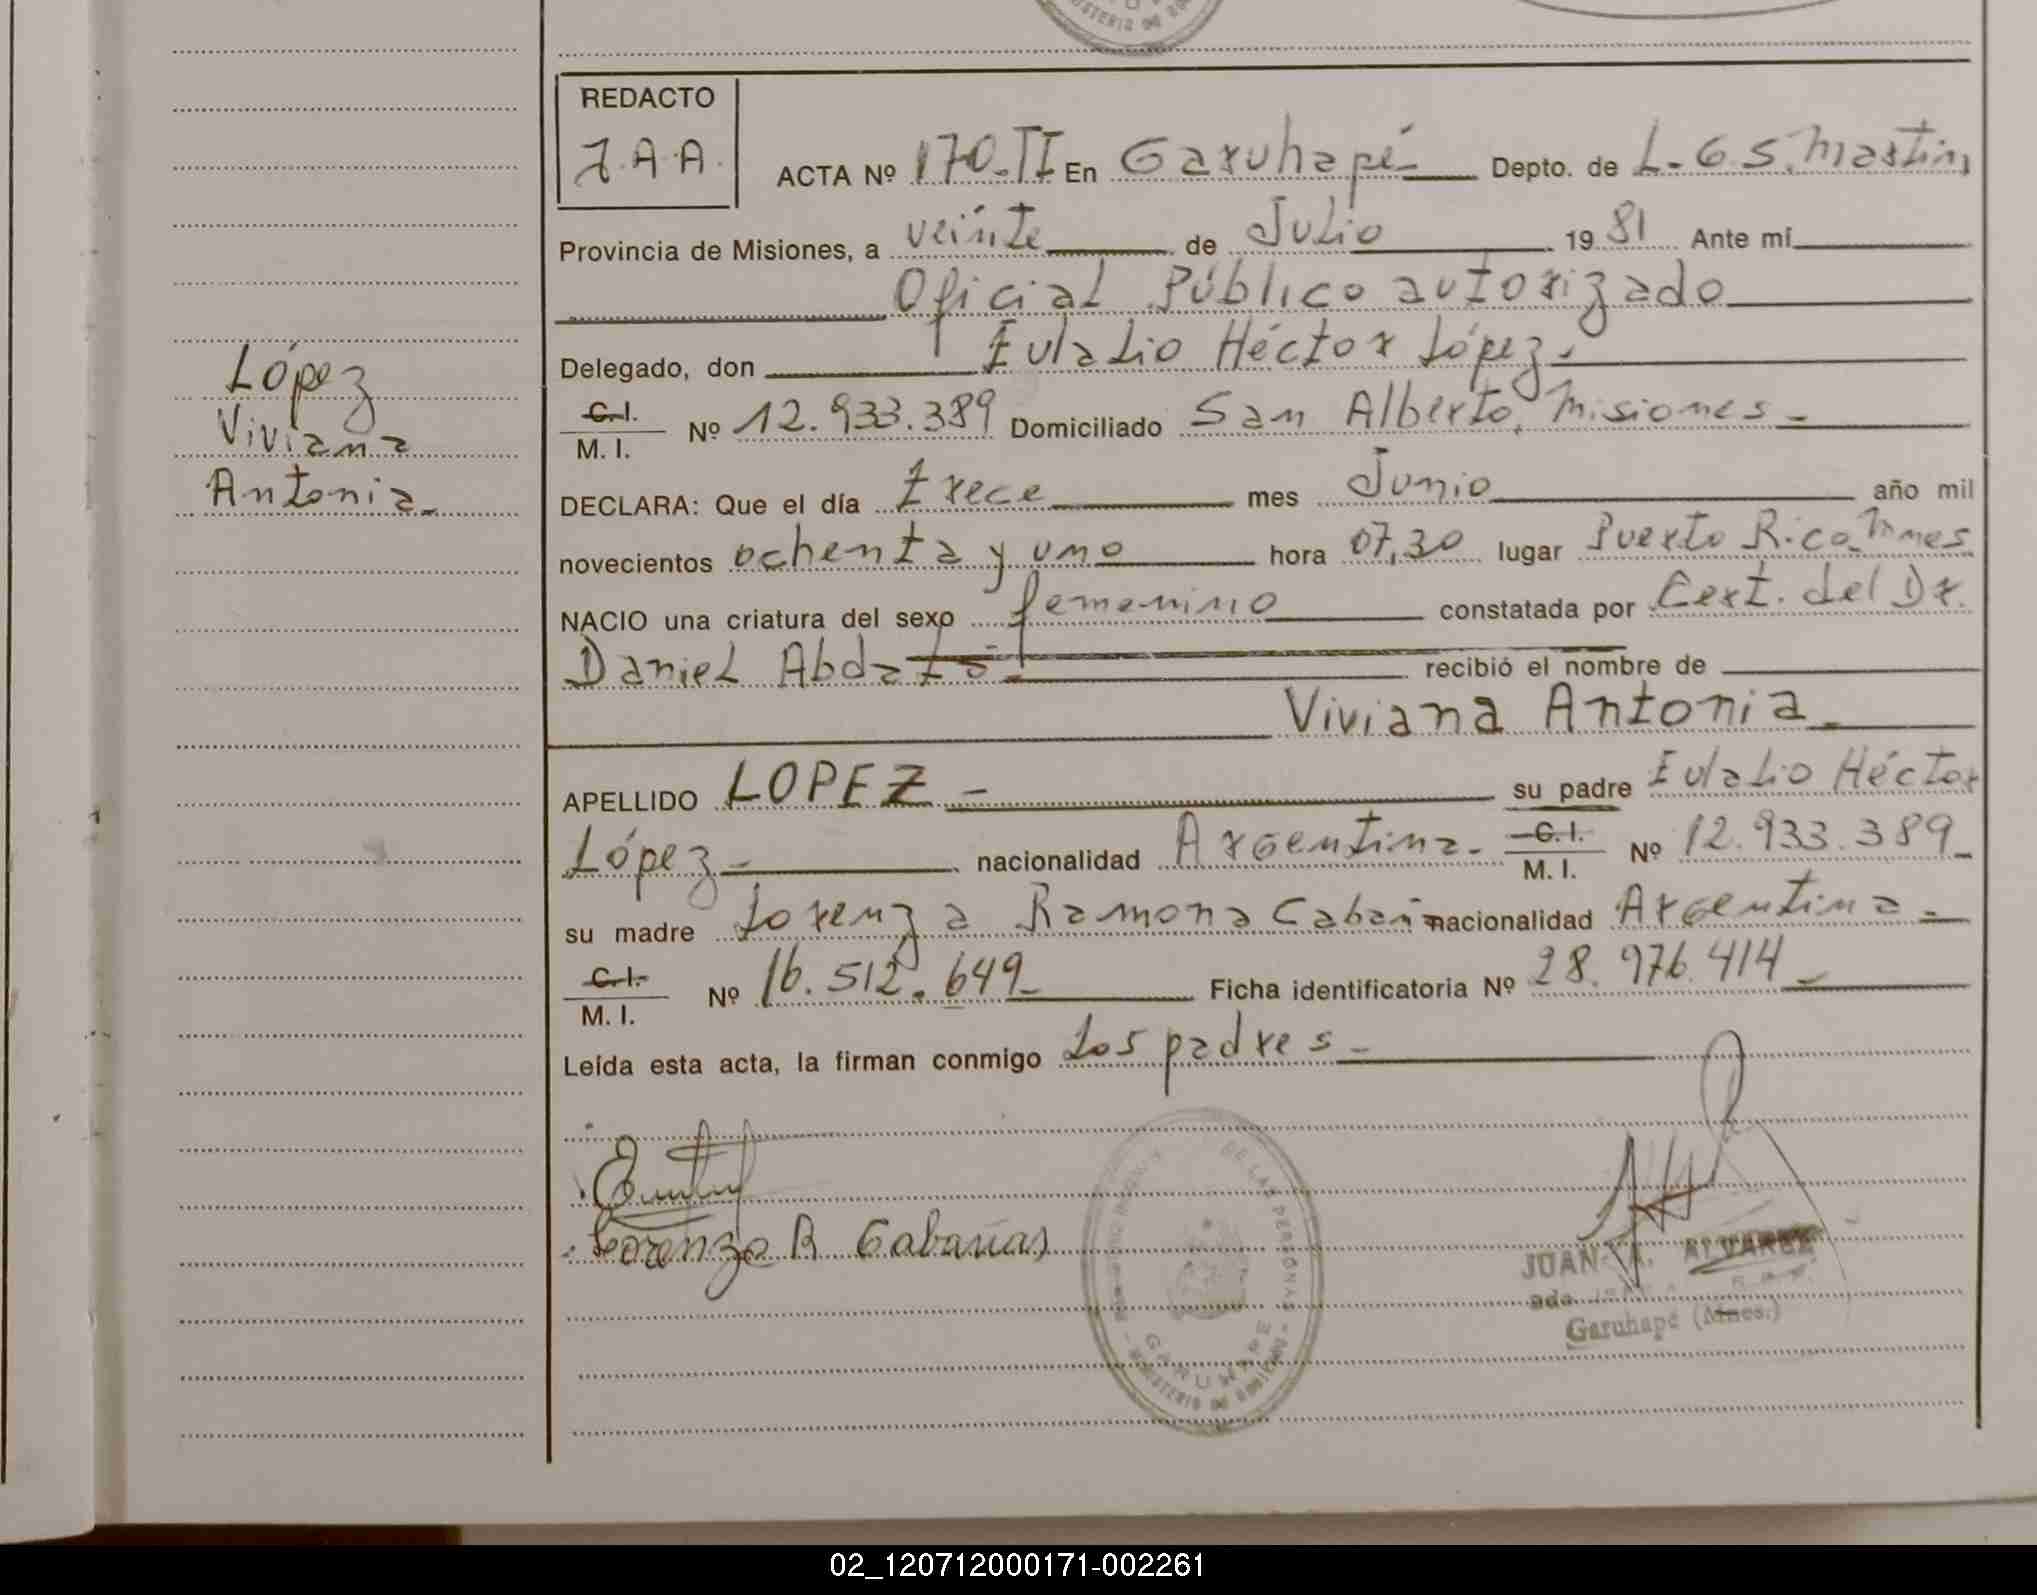 MINISTERIO DE
REDACTO
J.A.A.
ACTA Nº 170-II En Garuhapé Depto. de L.G.S. Martin,
Provincia de Misiones, a veinte de Julio 1981 Ante mí
Oficial Público autorizado
Delegado, don Eulalio Héctor López.
C.I. M.I. Nº 12.933.389 Domiciliado San Alberto, Misiones.
DECLARA: Que el día trece mes Junio año mil
novecientos ochenta y uno hora 07,30 lugar Puerto Rico Mnes
NACIO una criatura del sexo femenino constatada por Cert. del Dr.
Daniel Abdala recibió el nombre de
Viviana Antonia.
López
Viviana
Antonia.
APELLIDO LOPEZ - su padre Eulalio Héctor
López nacionalidad Argentina. C.I. M.I. Nº 12.933.389
su madre Lorenza Ramona Cabañ nacionalidad Argentina.
C.I. M.I. Nº 16.512.649 Ficha identificatoria Nº 28.976.414
Leída esta acta, la firman conmigo Los padres.
Lorenza R Cabañas
DE LAS PERSONAS
GARUHAPE
MINISTERIO DE GOBIERNO
JUAN A. ALVAREZ
Garuhapé (Mnes.)
02_120712000171-002261